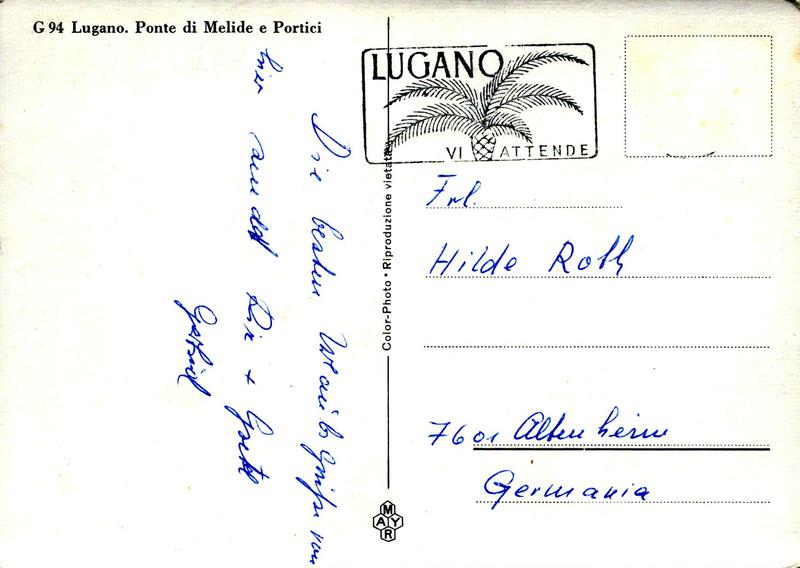 G 94 Lugano. Ponte di Melide e Portici
LUGANO
VI ATTENDE
Color-Photo • Riproduzione vietata
MAYR
Die besten Urlaubsgrüße von
hier sendet Dir +
Frl.
Hilde Roth
7601 Altenheim
Germania